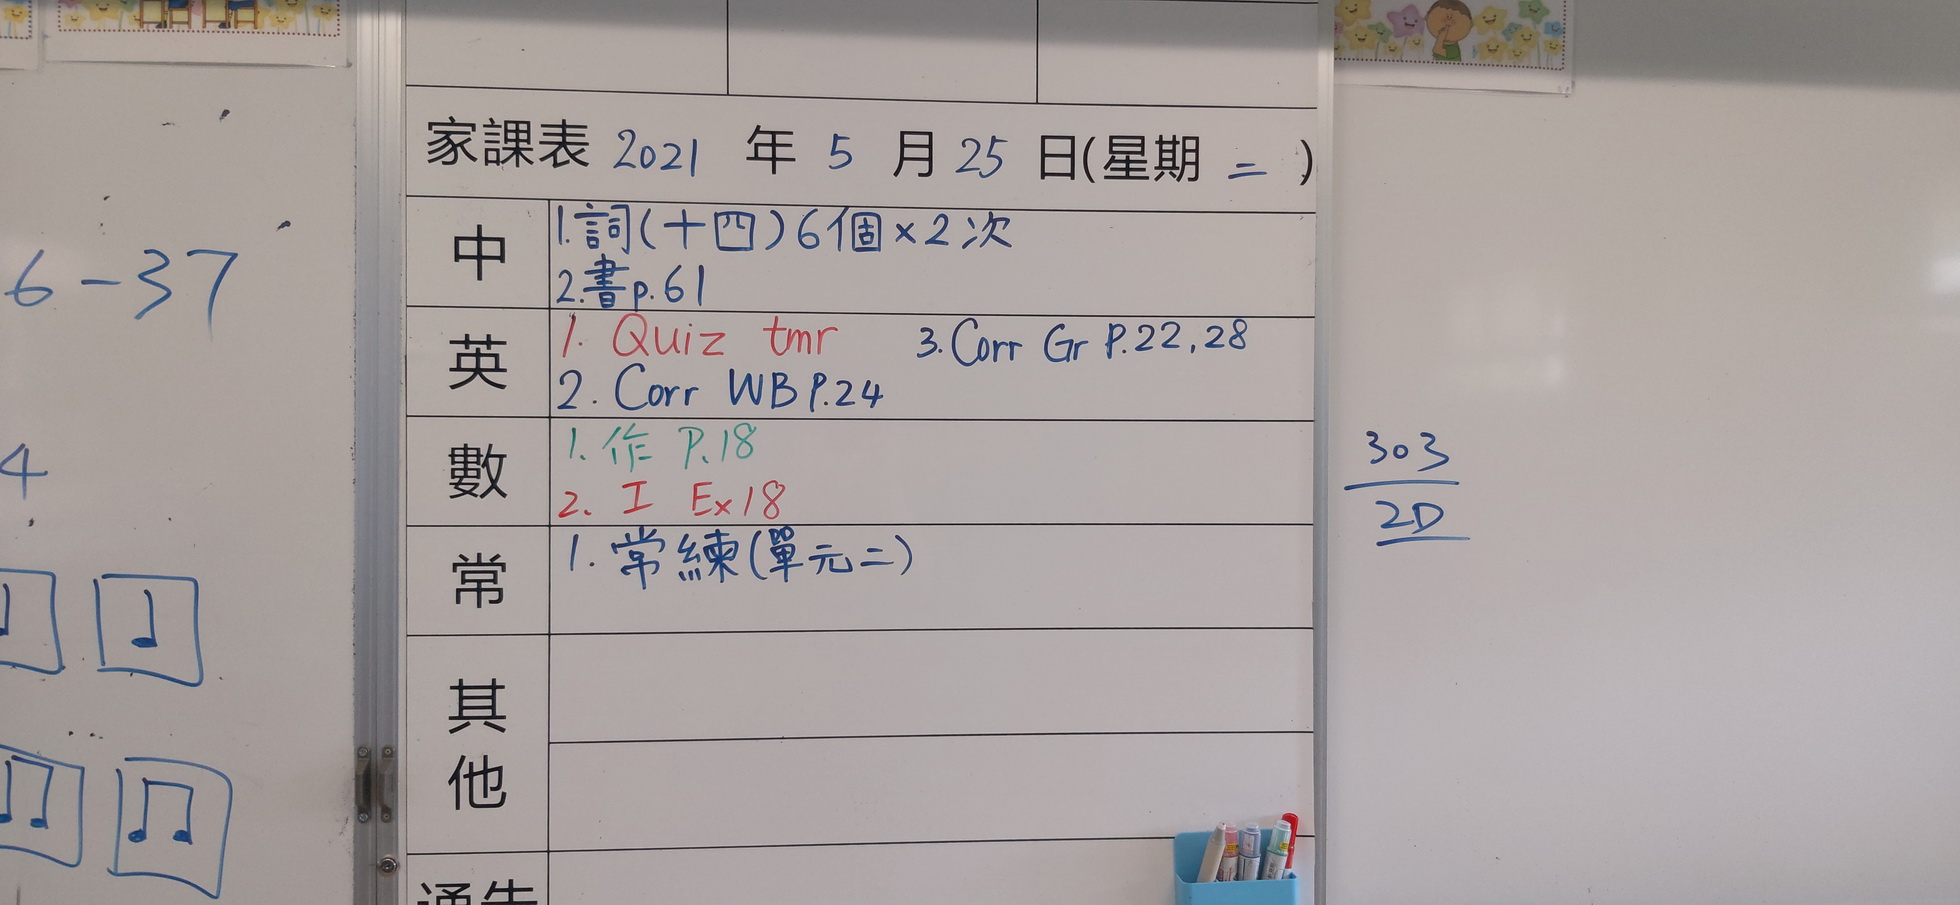 6-37
4
家課表 2021 年 5 月 25 日(星期 二 )
中
1.詞(十四)6個×2次
2.書p.61
英
1. Quiz tmr 3.Corr Gr P.22,28
2. Corr WB P.24
數
1. 作 P.18
2. I Ex18
常
1. 常練(單元二)
其他
通告
303
2D